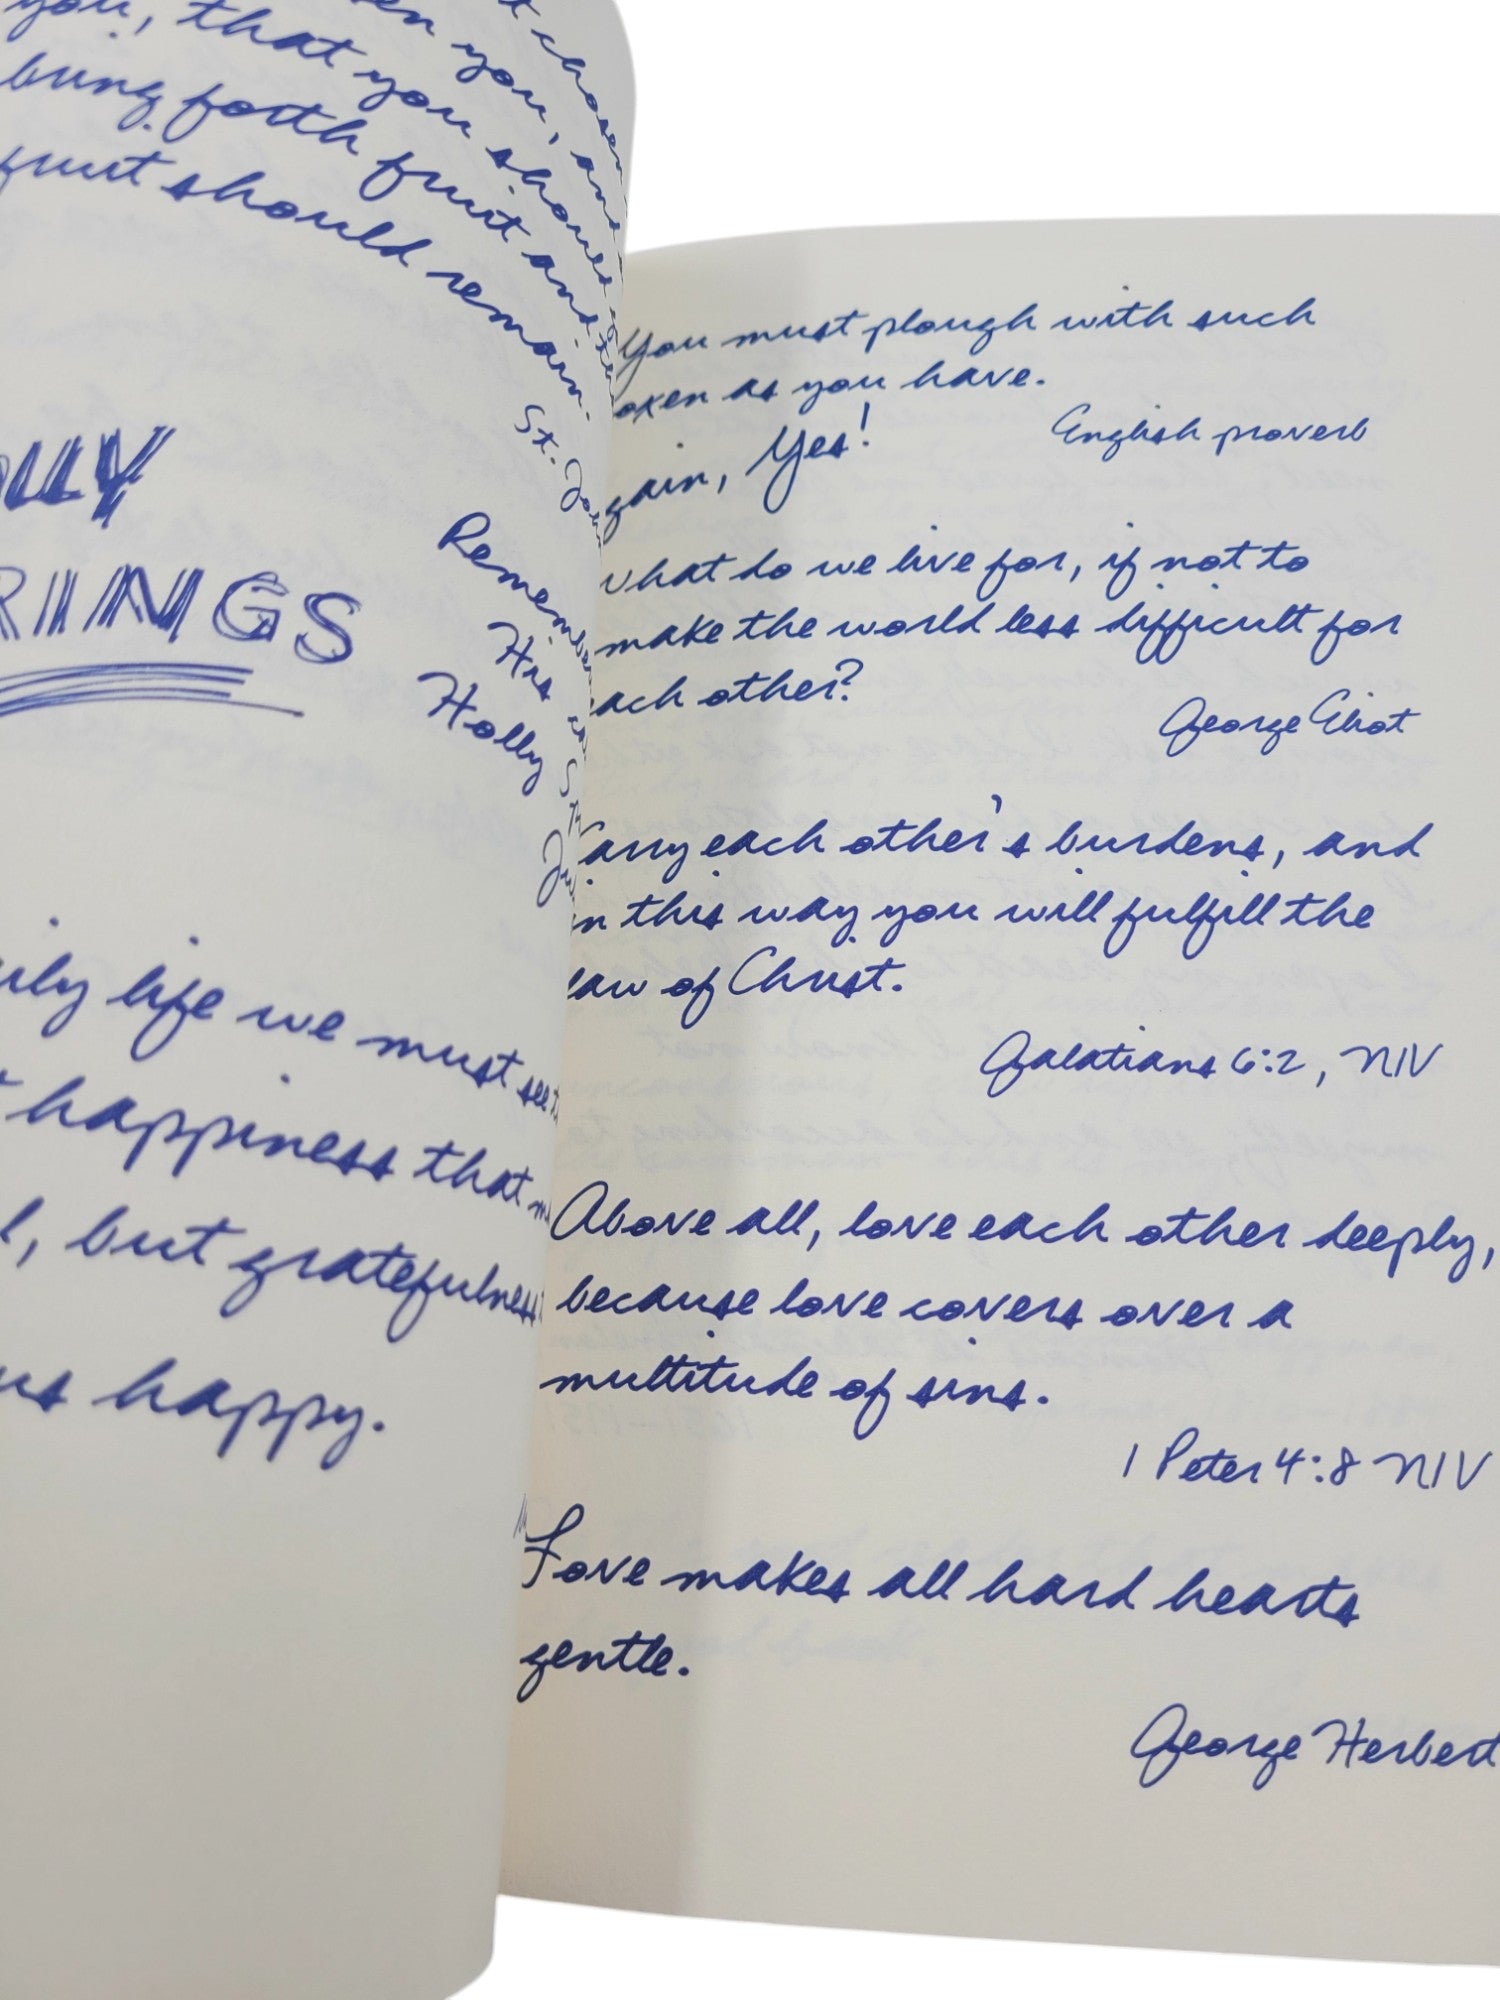 t chosen
en you, and
you, that you should
bring forth fruit and
fruit should remain.
St.
RINGS
Holly
life we must see
happiness that
but gratefulness
us happy.
You must plough with such
oxen as you have.
English proverb
gain, Yes!
what do we live for, if not to
make the world less difficult for
ach other?
George Eliot
arry each other's burdens, and
in this way you will fulfill the
law of Christ.
Galatians 6:2, NIV
Above all, love each other deeply,
because love covers over a
multitude of sins.
1 Peter 4:8 NIV
Love makes all hard hearts
gentle.
George Herbert